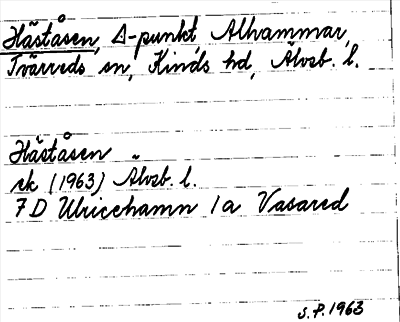 Häståsen, Δ-punkt, Alhammar,
Tvärreds sn, Kinds hd, Älvsb. l.
Häståsen
ek (1963) Älvsb. l.
7D Ulricehamn 1a Vasared
S.P. 1963